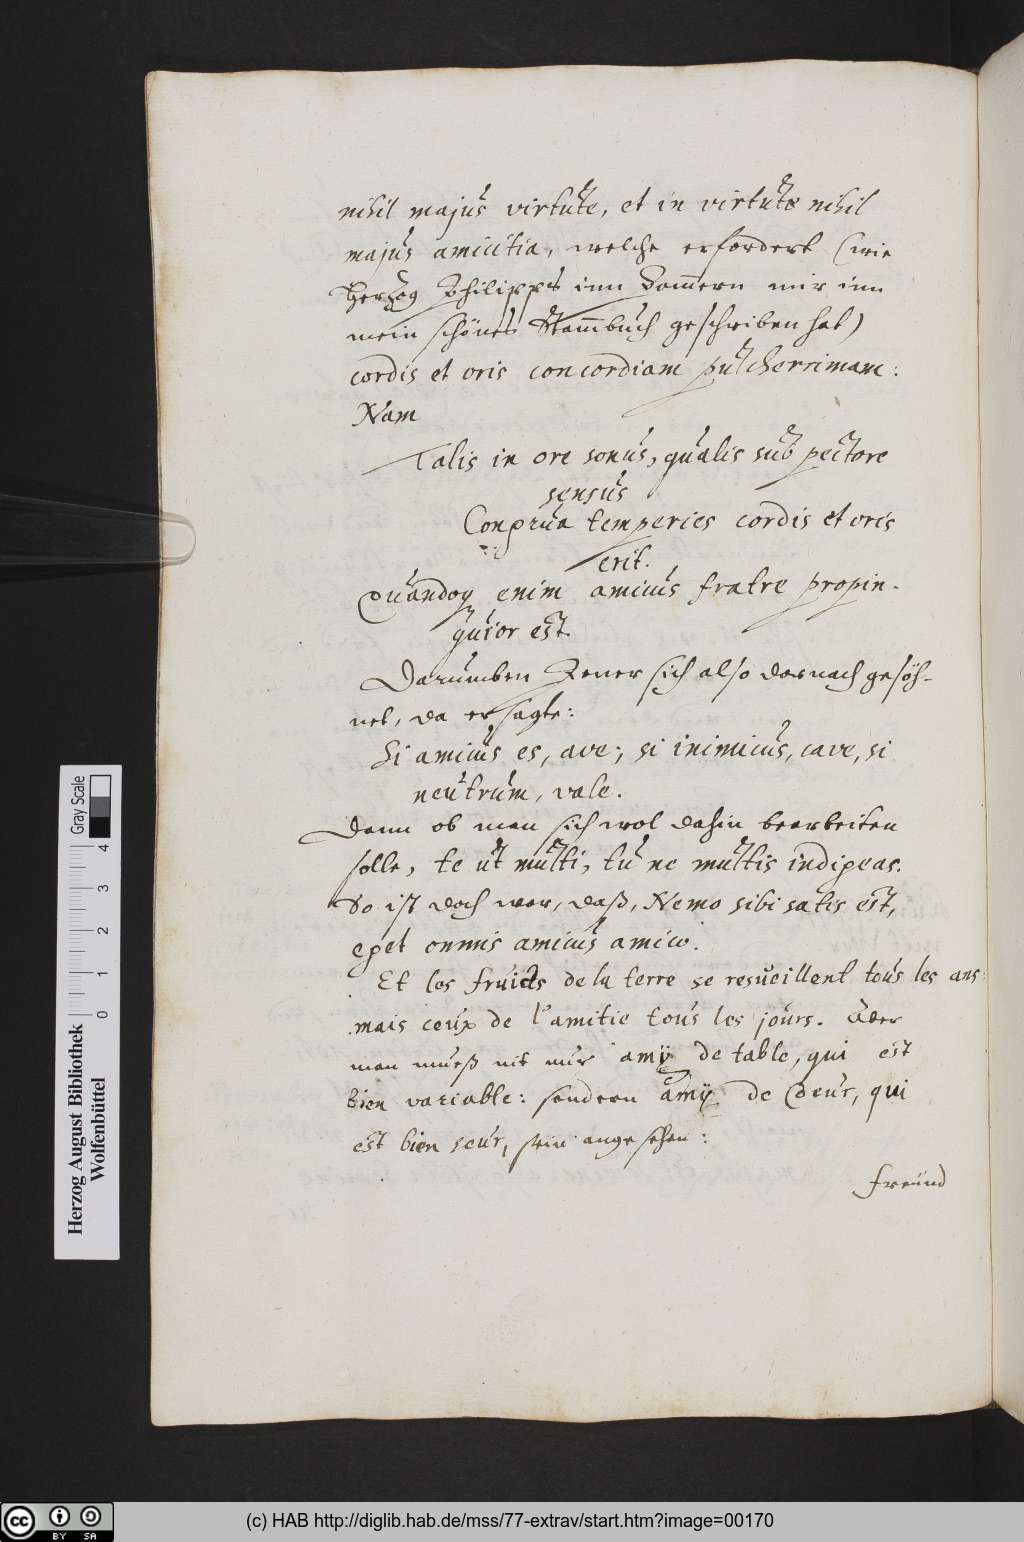 nihil majus virtute, et in virtute nihil
majus amicitia, welche erfordert (wie
Herzog Philipps inn Pom̄ern mir inn
mein schönes Stam̄buch geschriben hat)
cordis et oris concordiam pulcherrimam:
Nam
Talis in ore sonus, qualis sub pectore
sensus
Congrua temperies cordis et oris
erit.
Quandoq enim amicus fratre propin-
quior est.
Darumben Jener sich also darnach gesöh-
net, da er sagte:
Si amicus es, ave; si inimicus, cave, si
neutrum, vale.
Dann ob man sich wol dahin bearbeiten
solle, te ut multi, tu ne multis indigeas.
So ist doch war, daß, Nemo sibi satis est,
eget omnis amicus amico.
Et les fruicts de la terre se resueillent tous les ans:
mais ceux de l'amitie tous les jours. Aber
man mueß nit nur amÿ de table, qui est
bien variable: sondern amÿ de Coeur, qui
est bien seur, sein angesehen:
freund
Herzog August Bibliothek
Wolfenbüttel
0 1 2 3 4
Gray Scale
cc BY SA
(c) HAB http://diglib.hab.de/mss/77-extrav/start.htm?image=00170